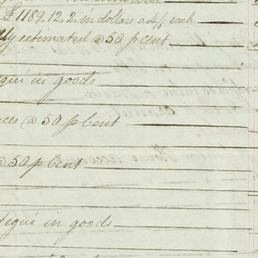 £1189.12.2. in dollars a 4/ each
lly estimated @ 50 p cent
egui in goods
ices @ 50 p Cent
@ 50 p Cent
tegui in goods